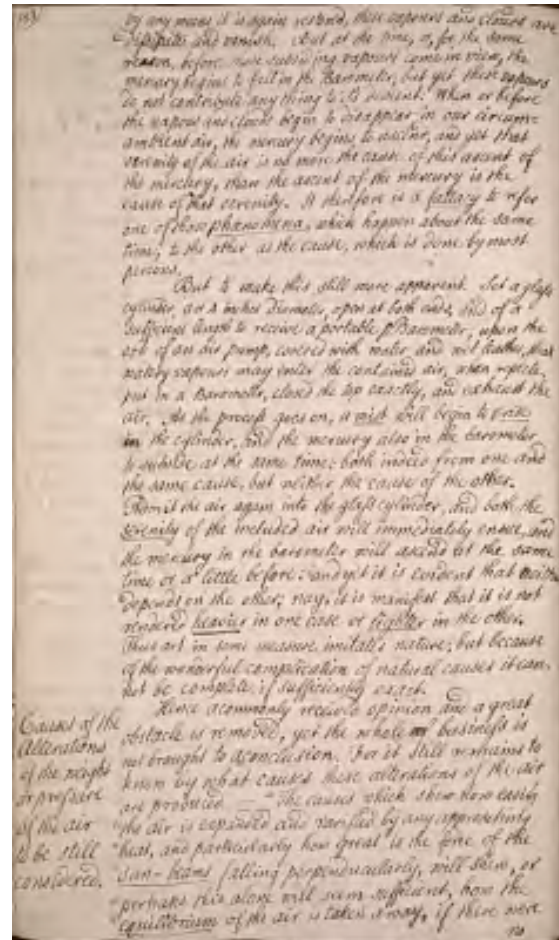 by any means it is again restored, these vapours and clouds are
dissipated and vanish. But at the time, or, for the same
reason, before these subsiding vapours come in view, the
mercury begins to fall in the Barometer, but yet these vapours
do not contribute any thing to its descent. When or before
the vapours and clouds begin to disappear in our circum=
ambient air, the mercury begins to ascend, and yet that
serenity of the air is no more the cause of this ascent of
the mercury, than the ascent of the mercury is the
cause of that serenity. It therefore is a fallacy to refer
one of those phænomena, which happen about the same
time, to the other as the cause, which is done by most
persons.
But to make this still more apparent. Let a glass
cylinder, 4 inches Diameter, open at both ends, and of a
sufficient length to receive a portable Barometer, upon the
of an air pump, covered with water, and wet leather, that
watery vapours may enter the contained air, when
put in a Barometer, close the top exactly, and exhaust the
air. As the process goes on, a mist will begin to arise
in the cylinder, and the mercury also in the barometer
to subside at the same time; both indeed from one and
the same cause, but neither the cause of the other.
Admit the air again into the glass cylinder, and both the
serenity of the included air will immediately ensue, and
the mercury in the barometer will ascend at the same
time or a little before: and yet it is evident that neither
depends on the other; nay, it is manifest that it is not
rendered heavier in one case or lighter in the other.
Thus art in some measure imitates nature; but because
of the wonderful complication of natural causes it can
not be complete, if sufficiently exact.
Hence a commonly received opinion and a great
obstacle is removed, yet the whole business is
not brought to a conclusion. For it still remains to
know by what causes these alterations of the air
are produced. "The causes which shew how easily
"the air is expanded and rarified by any approaching
"heat, and particularly how great is the force of the
sun-beams falling perpendicularly, will shew, or
"perhaps this alone will seem sufficient, how the
"equilibrium of the air is taken away, if there were
no
Causes of the
Alterations
of the weight
or pressure
of the air
to be still
considered.